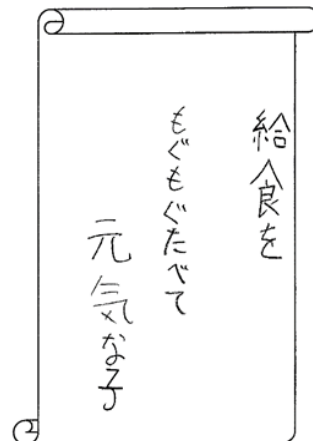 給食を
もぐもぐたべて
元気な子